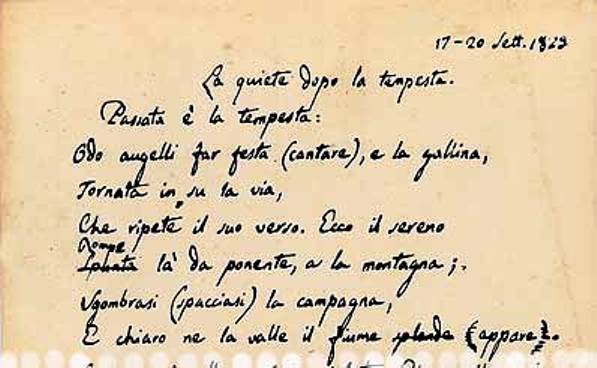 17-20 Sett. 1829
La quiete dopo la tempesta.
Passata è la tempesta:
Odo augelli far festa (cantare), e la gallina,
Tornata in su la via,
Che ripete il suo verso. Ecco il sereno
Rompe
Spunta là da ponente, a la montagna;
Sgombrasi (spacciasi) la campagna,
E chiaro ne la valle il fiume splende (appare).